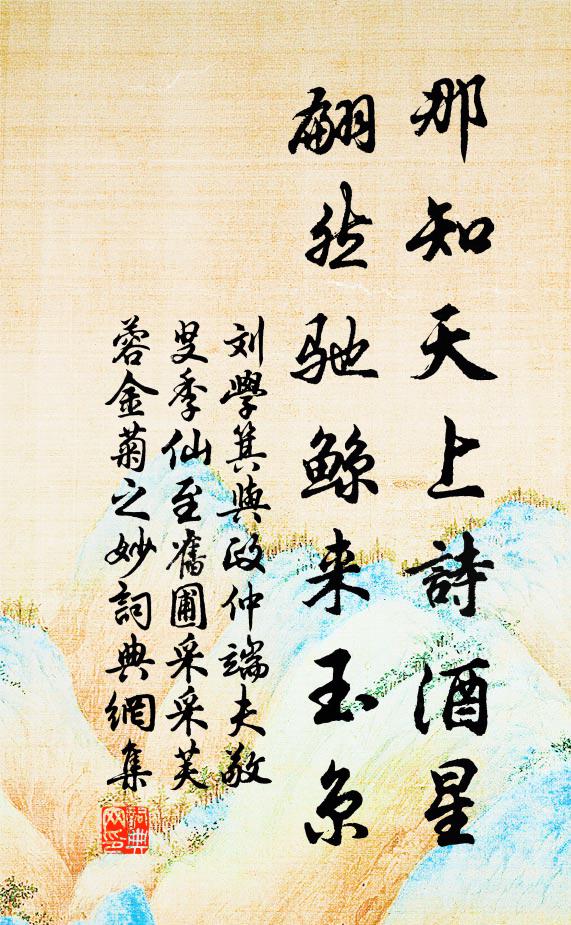 那知天上詩酒星
翩然馳鲸来玉京
刘學箕與政仲端夫敬
叟季仙至舊圃采采芙
蓉金菊之妙詞典網集
詞典网印